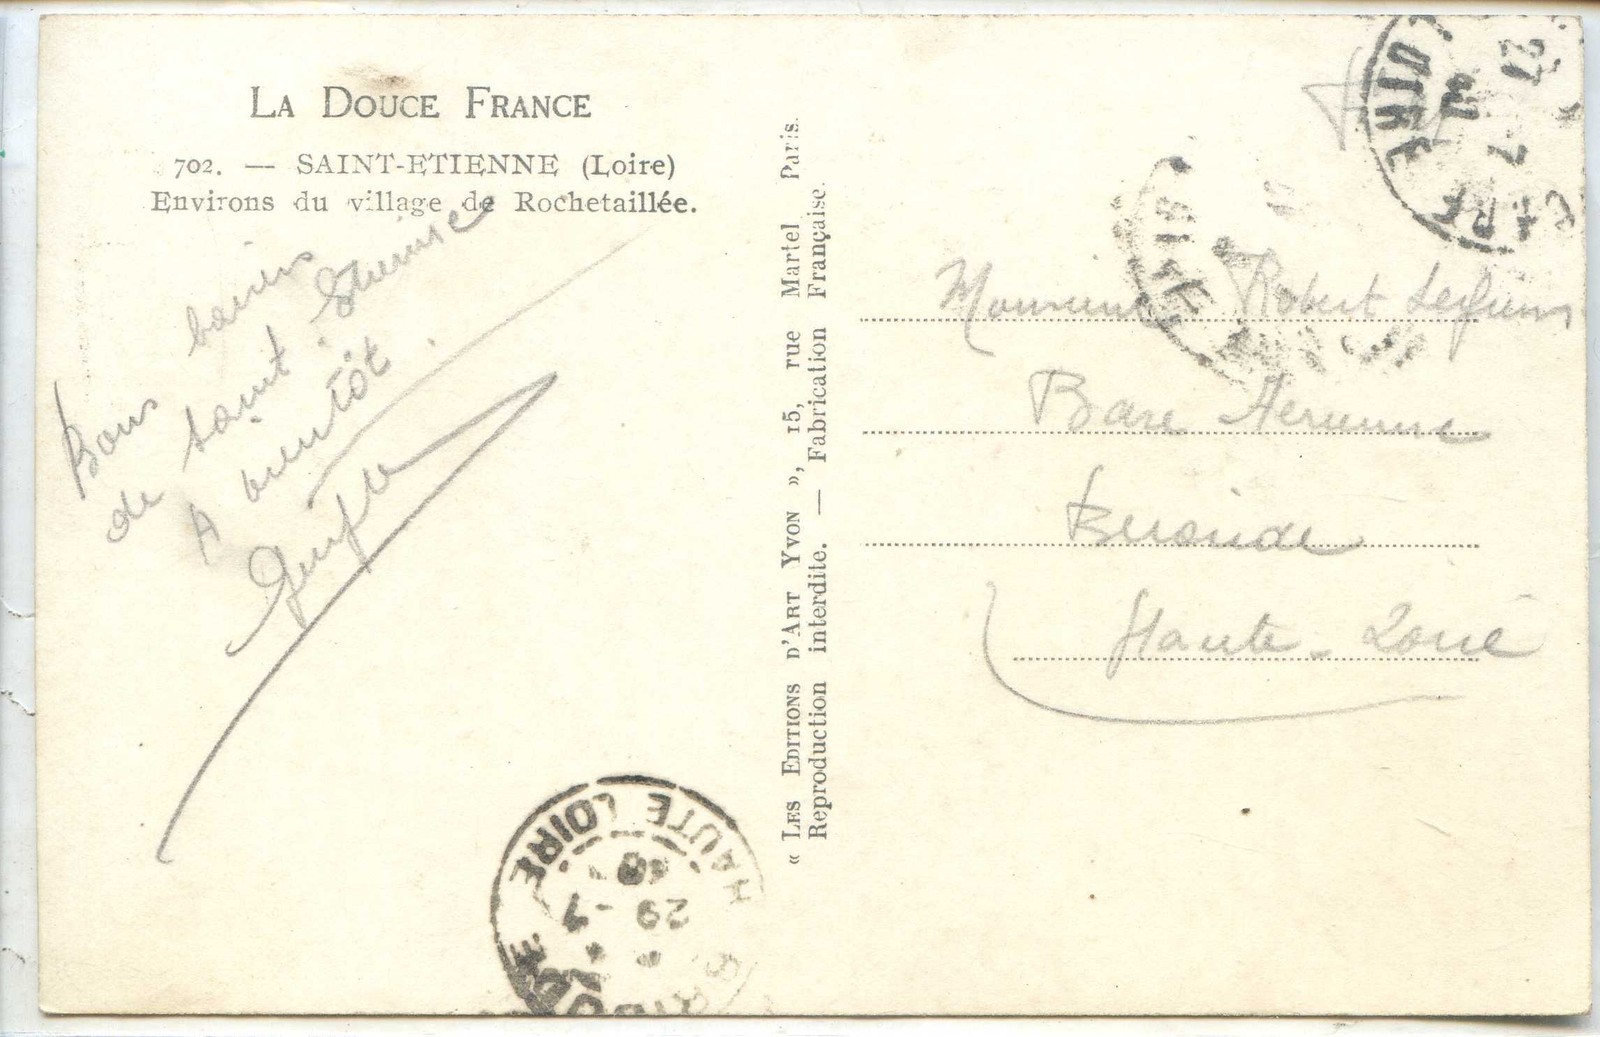 LA DOUCE FRANCE
702. — SAINT-ETIENNE (Loire)
Environs du village de Rochetaillée.
Bons baisers
de Saint Etienne
A bientôt.
« LES EDITIONS D'ART YVON », 15, rue Martel Paris.
Reproduction interdite. — Fabrication Française.
Monsieur Robert
Base Aerienne
Haute-Loire
HAUTE LOIRE
29-7
BRIOUDE
27
7
LOIRE